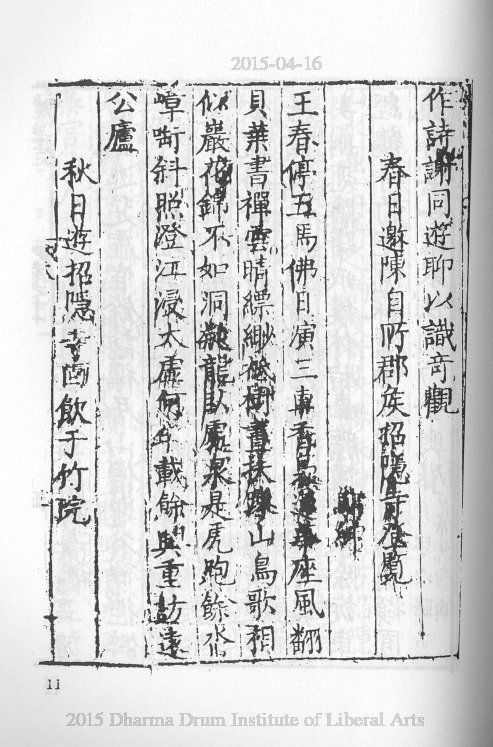 2015-04-16
作詩謝同遊聊以識奇觀
春日邀陳自所郡侯招隱寺
王春停五馬佛日演三車香座風翻
貝葉書禪雲晴縹緲山鳥歌相
似巖花錦不如洞龍臥處泉是虎跑餘水
嶂啣斜照澄江浸太虛何年載餘與重訪遠
公廬
秋日遊招隱寺酌飲于竹院
11
2015 Dharma Drum Institute of Liberal Arts